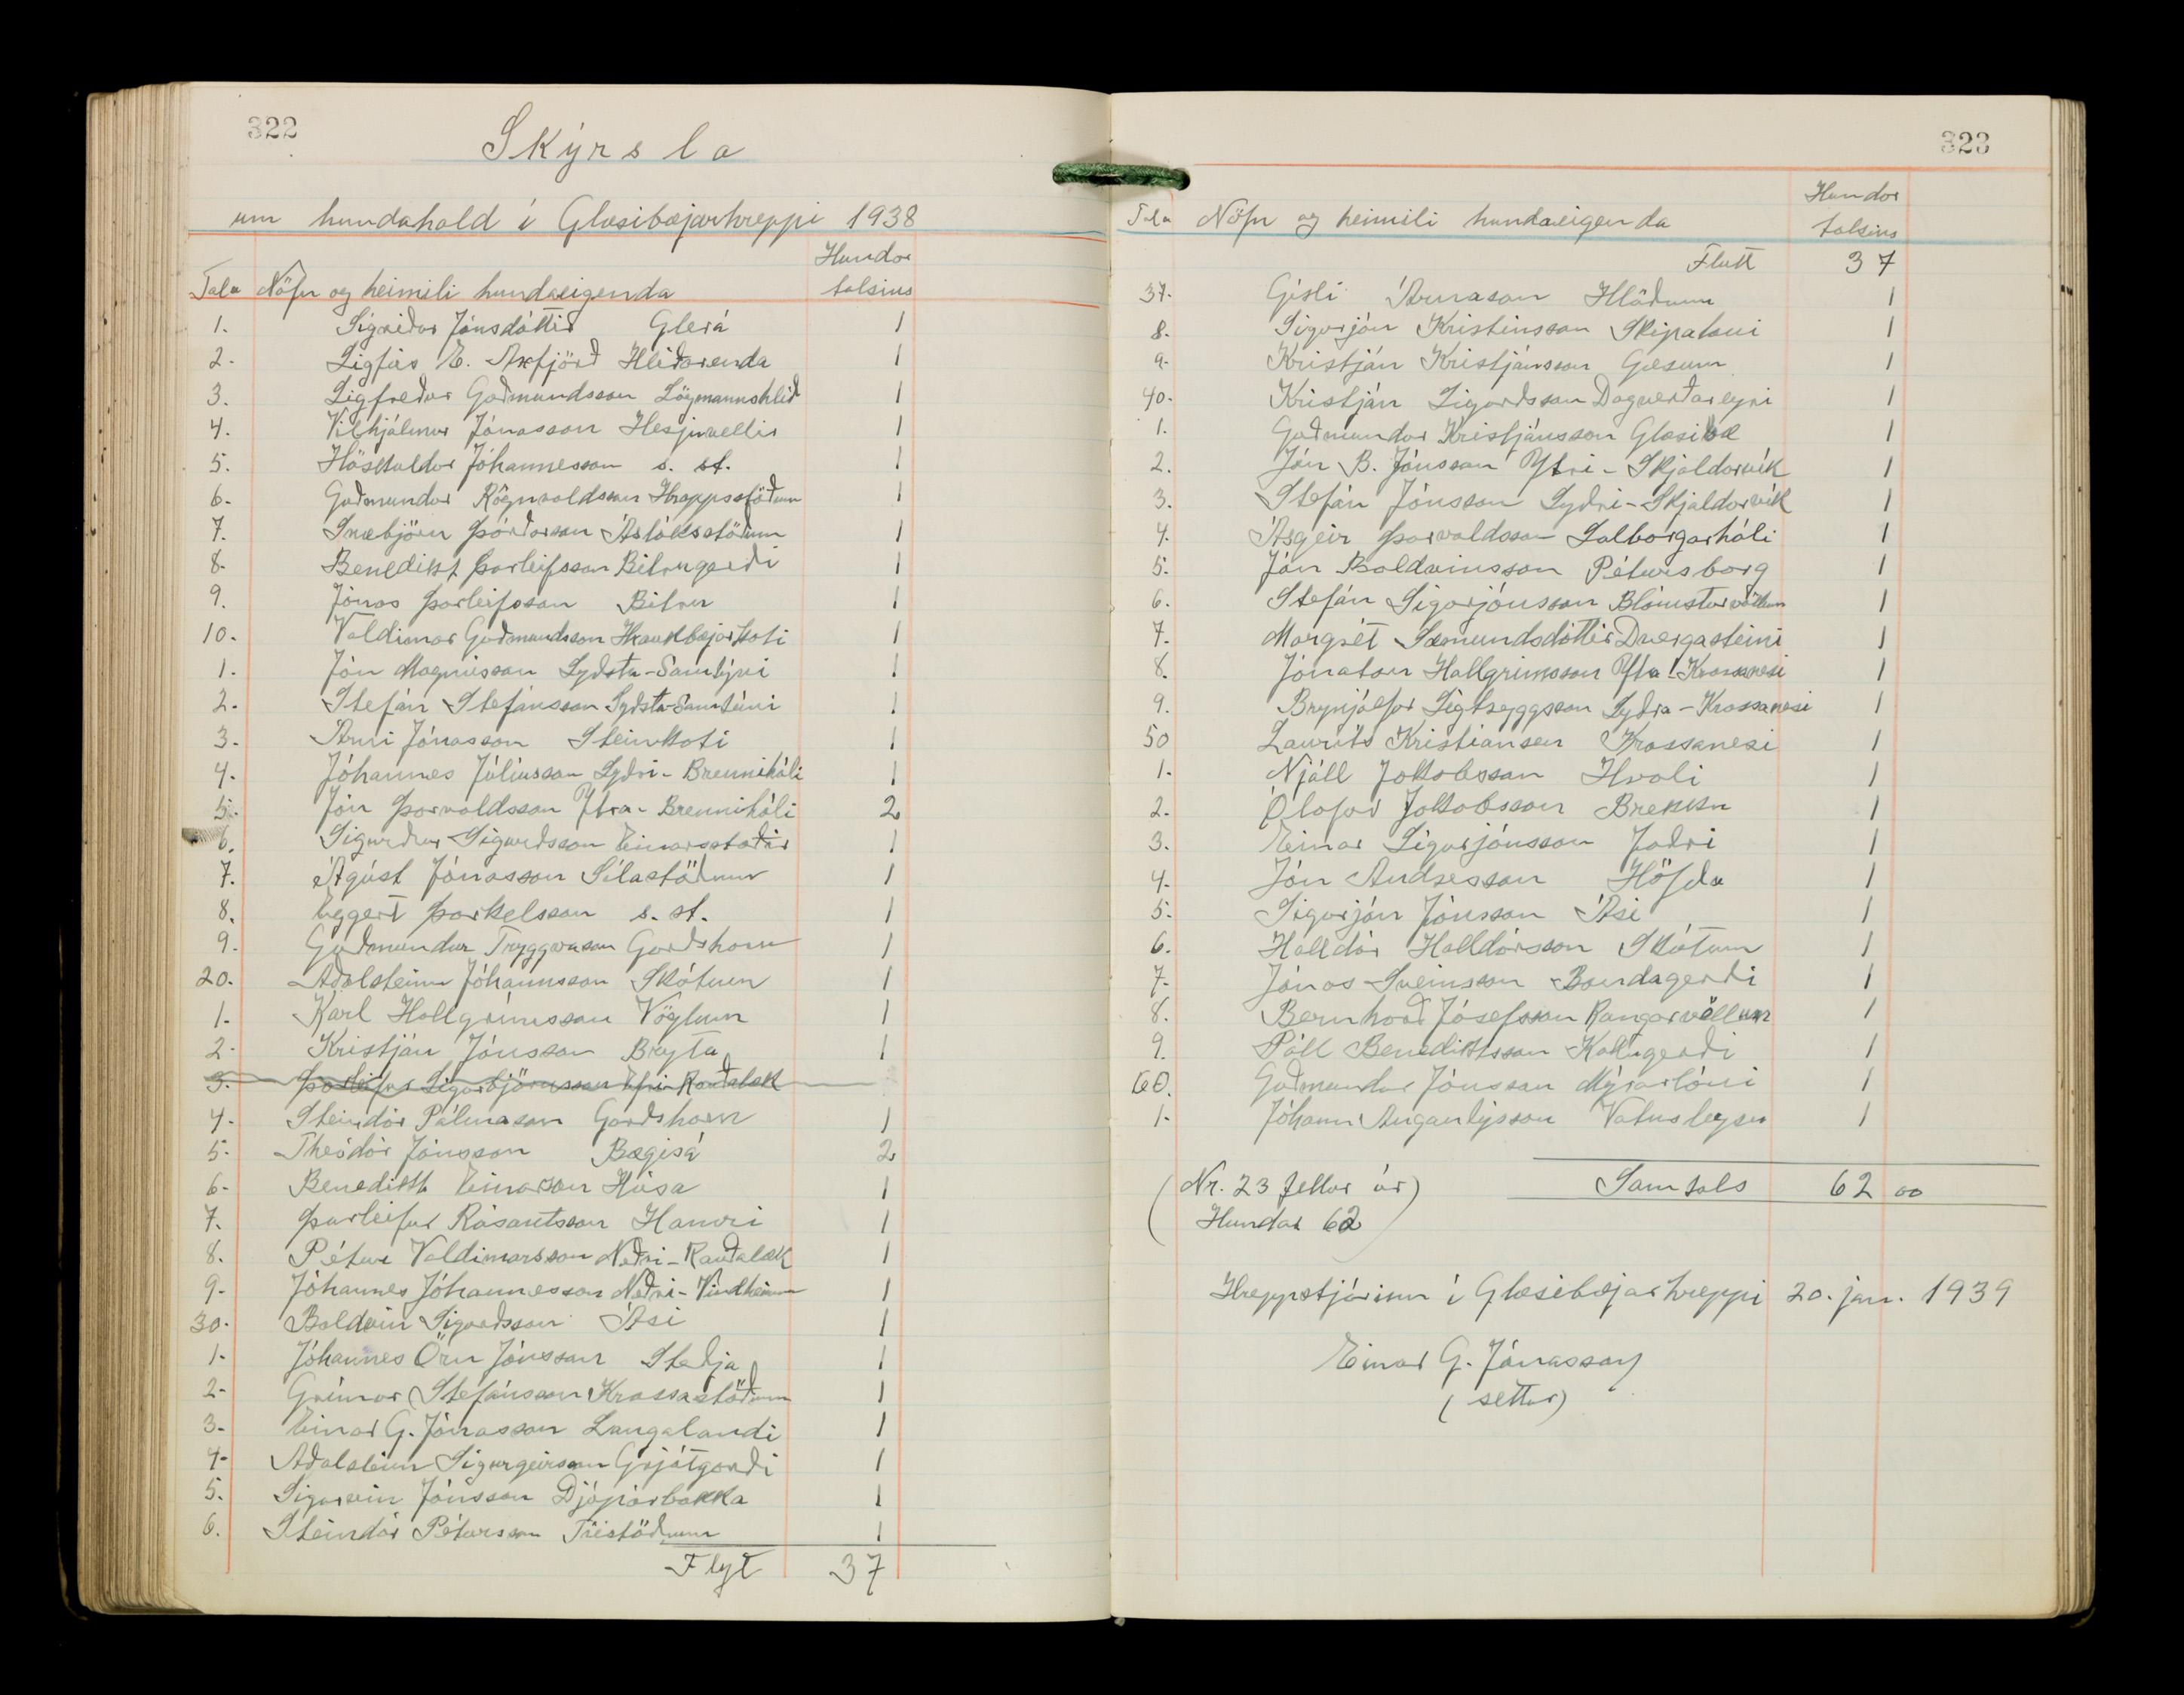 322
Skýrsla
um hundahald í Glæsibæjarhreppi 1938
Tala Nöfn og heimili hundaeigenda Hundar talsins
1. Sigríður Jónsdóttir Glerá 1
2. Sigfús E. Axfjörð Hlíðarenda 1
3. Sigfreður Guðmundsson Lögmannshlíð 1
4. Vilhjálmur Jónasson Hesjuvellir 1
5. Höskuldur Jóhannesson s. st. 1
6. Guðmundur Rögnvaldsson Hrappsstöðum 1
7. Snæbjörn Þórðarson Ásláksstöðum 1
8. Benedikt Þorleifsson Bitrugerði 1
9. Jónas Þorleifsson Bitru 1
10. Valdimar Guðmundsson Hraukbæjarkoti 1
1. Jón Magnússon Syðsta-Samtýni 1
2. Stefán Stefánsson Syðsta-Samtúni 1
3. Árni Jónasson Steinkoti 1
4. Jóhannes Júlíusson Syðri-Brennihóli 1
5. Jón Þorvaldsson Ytra-Brennihóli 2
6. Sigurður Sigurðsson Einarsstaðir 1
7. Ágúst Jónasson Sílastöðum 1
8. Eggert Þorkelsson s. st. 1
9. Guðmundur Tryggvason Garðshorn 1
20. Aðalsteinn Jóhannsson Skútum 1
1. Karl Hallgrímsson Vöglum 1
2. Kristján Jónsson Bryta 1
3. Þorleifur Sigurbjörnsson Efri-Rauðalæk
4. Steindór Pálmason Garðshorn 1
5. Theódór Jónsson Bægisá 2
6. Benedikt Einarsson Húsa 1
7. Þorleifur Rósantsson Hamri 1
8. Pétur Valdimarsson Neðri-Rauðalæk 1
9. Jóhannes Jóhannesson Neðri-Vindheimum 1
30. Baldvin Sigurðsson Ási 1
1. Jóhannes Örn Jónsson Steðja 1
2. Grímur Stefánsson Krossastöðum 1
3. Einar G. Jónasson Laugalandi 1
4. Aðalsteinn Sigurgeirsson Grjótgarði 1
5. Sigurvin Jónsson Djúpárbakka 1
6. Steindór Pétursson Tréstöðum 1
Flyt 37
323
Tala Nöfn og heimili hundaeigenda Hundar talsins
Flutt 37
37. Gísli Árnason Hlöðum 1
8. Sigurjón Kristinsson Skipalóni 1
9. Kristján Kristjánsson Gæsum 1
40. Kristján Sigurðsson Dagverðareyri 1
1. Guðmundur Kristjánsson Glæsibæ 1
2. Jón B. Jónsson Ytri-Skjaldarvík 1
3. Stefán Jónsson Syðri-Skjaldarvík 1
4. Ásgeir Þorvaldsson Sólborgarhóli 1
5. Jón Baldvinsson Pétursborg 1
6. Stefán Sigurjónsson Blómsturvöllum 1
7. Margrét Sæmundsdóttir Dvergasteini 1
8. Jónatan Hallgrímsson Ytra-Krossanesi 1
9. Brynjólfur Sigtryggsson Syðra-Krossanesi 1
50 Laurits Kristiansen Krossanesi 1
1. Njáll Jakobsson Hvoli 1
2. Ólafur Jakobsson Brekku 1
3. Einar Sigurjónsson Jaðri 1
4. Jón Andrésson Höfða 1
5. Sigurjón Jónsson Ási 1
6. Halldór Halldórsson Skútum 1
7. Jónas Sveinsson Bandagerði 1
8. Bernharð Jósefsson Rangárvöllum 1
9. Páll Benediktsson Kollugerði 1
60. Guðmundur Jónsson Mýrarlóni 1
1. Jóhann Angantýsson Vatnsleysu 1
Samtals 62 00
(Nr. 23 fellur úr)
Hundar 62
Hreppstjórinn í Glæsibæjarhreppi 20. jan. 1939
Einar G. Jónasson
(settur)